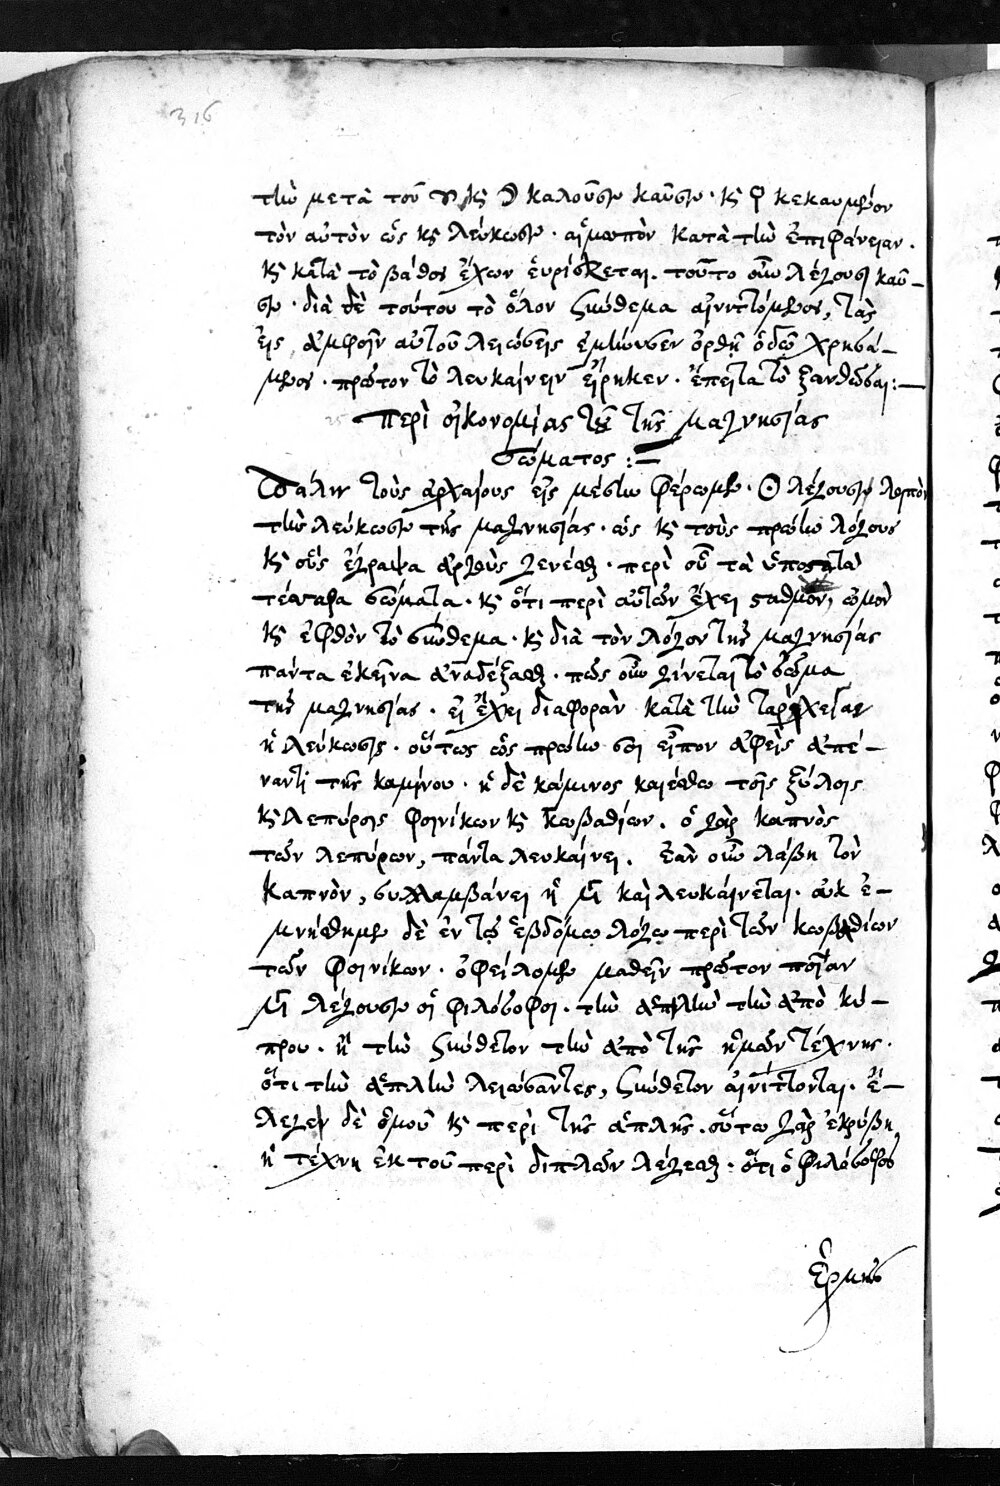 316
τὴν μετὰ τοῦ καὶ καλοῦσιν καῦσιν· καὶ κεκαυμένον
τὸν αὐτὸν ὡς καὶ λεύκωσιν· αἱμωπὸν κατὰ τὴν ἐπιφάνειαν.
καὶ κατὰ τὸ βάθος ἔχων εὑρίσκεται. τοῦτο οὖν λέγουσι καῦ-
σιν· διὰ δὲ τούτου τὸ ὅλον σύνθεμα αἰνιττόμενος, τὰς
εἰς ἀμφοῖν αὐτοῦ λειώσεις ἐμήνυσεν ὀρθῇ ὁδῷ χρησά-
μενος· πρῶτον τὸ λευκαίνειν εἴρηκεν· ἔπειτα τὸ ξανθῶσαι:—
25 Περὶ οἰκονομίας τοῦ τῆς μαγνησίας
σώματος:—
Πάλιν τοὺς ἀρχαίους εἰς μέσην φέρομεν· Ὃ λέγουσιν λοιπὸν
τὴν λεύκωσιν τῆς μαγνησίας· ὡς καὶ τοὺς πρώην λόγους
καὶ οὓς ἔγραψα ἀρτίως γενέσθαι· περὶ οὗ τὰ ὑποστατὰ
τέσσαρα σώματα· καὶ ὅτι περὶ αὐτῶν ἔχει σταθμὸν, ὠμὸν
καὶ ἑφθὸν τὸ σύνθεμα· καὶ διὰ τὸν λόγον τῆς μαγνησίας
πάντα ἐκεῖνα ἀναδέξασθαι· πῶς οὖν γίνεται τὸ σῶμα
τῆς μαγνησίας· εἰ ἔχει διαφορὰν κατὰ τὴν ταριχείαν
ἡ λεύκωσις· οὕτως ὡς πρώην σοι εἶπον ἀφεὶς ἀπέ-
ναντι τῆς καμίνου· ἡ δὲ κάμινος καιέσθω τοῖς ξύλοις
καὶ λεπύροις φοινίκων καὶ κωβαθίων. ὁ γὰρ καπνὸς
τῶν λεπύρων, πάντα λευκαίνει. ἐὰν οὖν λάβῃ τὸν
καπνὸν, συλλαμβάνει ἡ μαγνησία καὶ λευκαίνεται. οὐκ ἐ-
μνήσθημεν δὲ ἐν τῷ ἑβδόμῳ λόγῳ περὶ τῶν κωβαθίων
τῶν φοινίκων· ὀφείλομεν μαθεῖν πρῶτον ποίαν
μαγνησίαν λέγουσιν οἱ φιλόσοφοι· τὴν ἁπλῆν τὴν ἀπὸ κύ-
πρου· ἢ τὴν σύνθετον τὴν ἀπὸ τῆς ἡμῶν τέχνης·
ὅτι τὴν ἁπλῆν λειώσαντες, σύνθετον αἰνίττονται. ἔ-
λεγεν δὲ ὁμοῦ καὶ περὶ τῆς ἁπλῆς. οὕτω γὰρ ἐκρύβη
ἡ τέχνη ἐκ τοῦ περὶ διπλῶν λέγεσθαι· ὅτι ὁ φιλόσοφος
Ἑρμῆς